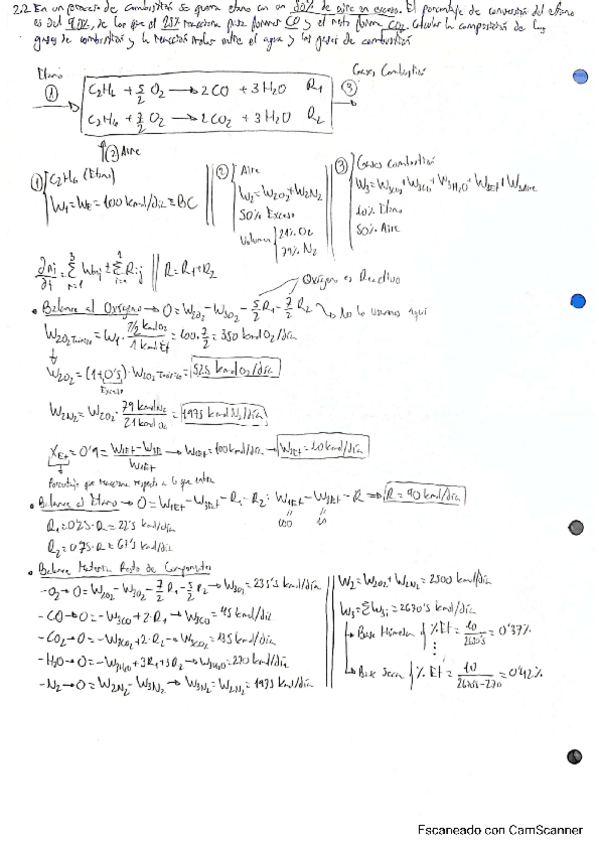 2.2. En un proceso de combustión se quema etano con un 50% de aire en exceso. El porcentaje de conversión del etano
es del 90%, de los que el 25% reacciona para formar CO y el resto forma CO₂. Calcular la composición de los
gases de combustión y la relación molar entre el agua y los gases de combustión
Etano
Gases Combustión
① C₂H₆ + 5/2 O₂ → 2CO + 3H₂O R₁ ③
C₂H₆ + 7/2 O₂ → 2CO₂ + 3H₂O R₂
② Aire
① C₂H₆ (Etano)
W₁ = WE = 100 kmol/día ≡ BC
② Aire
W₂ = W2O₂ + W2N₂
50% Exceso
Volumen 21% O₂
79% N₂
③ Gases Combustión
10% Etano
50% Aire
R = R₁ + R₂
Oxígeno es Reactivo
• Balance al Oxígeno → 0 = W2O₂ - W3O₂ - 5/2 R₁ - 7/2 R₂ → No lo usamos aquí
W2O₂Teórico = W₁ · (7/2 kmol O₂)/(1 kmol Et) = 100 · 7/2 = 350 kmol O₂/día
W2O₂ = (1+0'5) · W2O₂Teórico = 525 kmol O₂/día
Exceso
W2N₂ = W2O₂ · (79 kmol N₂)/(21 kmol O₂) = 1975 kmol N₂/día
XEt = 0'9 = (W1Et - W3Et)/W1Et → W1Et = 100 kmol/día → W3Et = 10 kmol/día
Porcentaje que reacciona respecto a lo que entra
• Balance al Etano → 0 = W1Et - W3Et - R₁ - R₂ = W1Et - W3Et - R → R = 90 kmol/día
100 10
R₁ = 0'25 · R = 22'5 kmol/día
R₂ = 0'75 · R = 67'5 kmol/día
• Balance Materia Resto de Componentes
- O₂ → 0 = W2O₂ - W3O₂ - 7/2 R₁ - 5/2 R₂ → W3O₂ = 235'5 kmol/día
- CO → 0 = -W3CO + 2·R₁ → W3CO = 45 kmol/día
- CO₂ → 0 = -W3CO₂ + 2·R₂ → W3CO₂ = 135 kmol/día
- H₂O → 0 = -W3H₂O + 3R₁ + 3R₂ → W3H₂O = 270 kmol/día
- N₂ → 0 = W2N₂ - W3N₂ → W3N₂ = W2N₂ = 1975 kmol/día
W₂ = W2O₂ + W2N₂ = 2500 kmol/día
W₃ = ΣW3i = 2670'5 kmol/día
Base Húmeda % Et = 10/2670'5 = 0'37%
Base Seca % Et = 10/(2670'5-270) = 0'42%
Escaneado con CamScanner